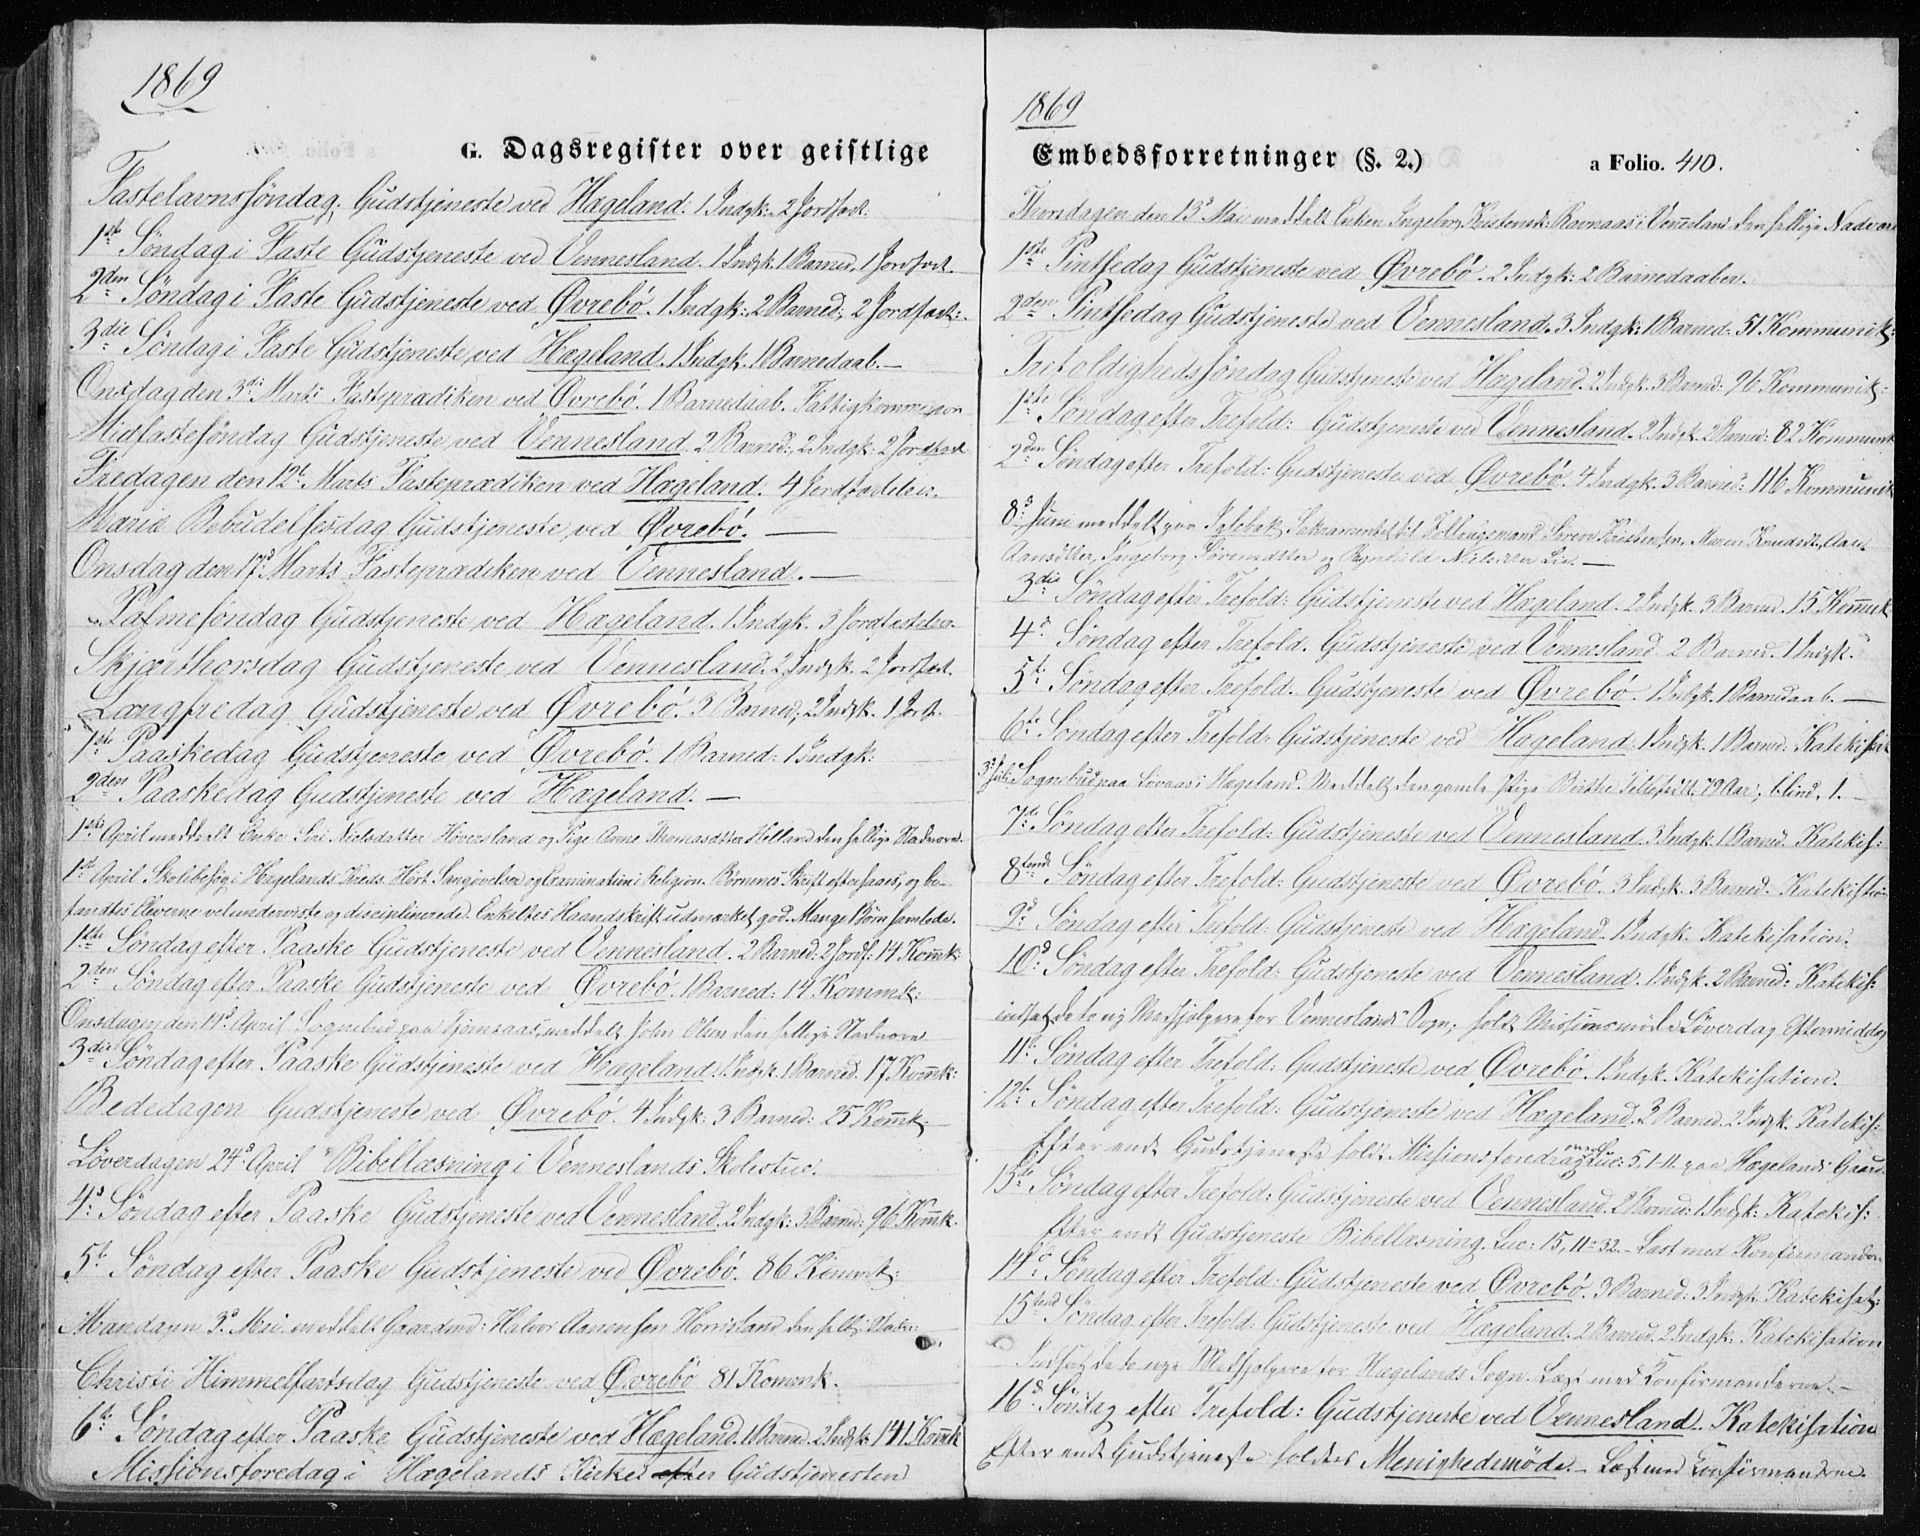 1869
G. Dagsregister over geistlige
Fastelavnssöndag, Gudstjeneste ved Hægeland. 1 Indgk: 2 Jordfæst:
1ste Söndag i Faste Gudstjeneste ved Vennesland. 1 Indgk. 1 Barned. 1 Jordfæst.
2den Söndag i Faste Gudstjeneste ved Øvrebö. 1 Indgk: 2 Barned; 2 Jordfæst:
3die Söndag i Faste Gudstjeneste ved Hægeland. 1 Indgk. 1 Barnedaab.—
Onsdag den 3die Marts Fasteprædiken ved Øvrebö. 1 Barnedaab. Fattigkommission
Midfastesöndag Gudstjeneste ved Vennesland. 2 Barned; 2 Indgk: 2 Jordfæst
Fredagen den 12te Marts Fasteprædiken ved Hægeland. 4 Jordfæstelser.
Mariæ Bebudelsesdag Gudstjeneste ved Øvrebö.—
Onsdag den 17d Marts Fasteprædiken ved Vennesland.—
Palmesöndag Gudstjeneste ved Hægeland. 1 Indgk. 3 Jordfæstelser.
Skjærthorsdag Gudstjeneste ved Vennesland. 2 Indgk. 2 Jordfæst.
Langfredag Gudstjeneste ved Øvrebö. 3 Barned; 2 Indgk. 1 Jordf.
1ste Paaskedag Gudstjeneste ved Øvrebö. 1 Barned: 1 Indgk:
2den Paaskedag Gudstjeneste ved Hægeland.—
1ste April meddelt Enke Siri Nielsdatter Höversland og Pige Anne Thomasdatter Helland den hellige Nadvere.
1ste April Skolebesög i Hægelands Kreds. Hört Sangövelser og Examination i Religion. Börnenes Skrift eftersaaes, og be-
fandtes Eleverne vel underviste og disciplinerede. Enkeltes Haandskrift udmærket god. Mange Börn samlede.
1ste Söndag efter Paaske Gudstjeneste ved Vennesland. 2 Barned: 2 Jordf: 14 Komk:
2den Söndag efter Paaske Gudstjeneste ved Øvrebö. 1 Barned: 14 Kommk:
Onsdagen den 14d April Sognebud paa meddelt John Olsen den hellige Nadvere
3die Söndag efter Paaske Gudstjeneste ved Hægeland. 1 Indgk. 1 Barned. 17 Komk:
Bededagen Gudstjeneste ved Øvrebö. 4 Indgk: 3 Barned: 25 Komk:
Löverdagen 24d April Bibellæsning i Venneslands Skolestue.
4d Söndag efter Paaske Gudstjeneste ved Vennesland. 2 Indgk: 3 Barned: 96 Komk.
5te Söndag efter Paaske Gudstjeneste ved Øvrebö. 86 Komk:
Mandagen 3d Mai meddelt Gaardmd: Halvor Aanensen den hell: Nadv:
Christi Himmelfartsdag Gudstjeneste ved Øvrebö 81 Komk.
6te Söndag efter Paaske Gudstjeneste ved Hægeland. 1 Barned. 2 Indgk: 141 Komk
Missionsforedag i Hægelands Kirke efter Gudstjenesten
1869
Embedsforretninger (§. 2.) a Folio. 410.
Thorsdagen den 13d Mai meddelt Enken Ingeborg Ravnaas i Vennesland den hellige Nadvere
1ste Pintsedag Gudstjeneste ved Øvrebö. 2 Indgk: 2 Barnedaaber.
2den Pintsedag Gudstjeneste ved Vennesland. 3 Indgk: 1 Barned: 51 Kommunik:
Trefoldighedssöndag Gudstjeneste ved Hægeland. 2 Indgk. 3 Barned: 96 Kommunik:
1ste Söndag efter Trefold: Gudstjeneste ved Vennesland. 2 Indgk. 2 Barned: 82 Kommunk
2den Söndag efter Trefold: Gudstjeneste ved Øvrebö. 4 Indgk. 3 Barned: 116 Kommunik
8d Juni meddelt paa Sakramentet til Sören Christensen, Maren
Ingeborg Sörensdatter og Ragnhild Nilsen Lie.—
3die Söndag efter Trefold: Gudstjeneste ved Hægeland. 2 Indgk. 3 Barned. 15 Komk
4d Söndag efter Trefold. Gudstjeneste ved Vennesland 2 Barned. 1 Indgk.
5te Söndag efter Trefold. Gudstjeneste ved Øvrebö. 1 Indgk. 1 Barnedaab.—
6te Söndag efter Trefold: Gudstjeneste ved Hægeland. 1 Indgk. 1 Barned: Katekisat
3d Juli: Sognebud paa Lövaas i Hægeland. Meddelt den gamle Pige Birthe 79 Aar, blind, 1.—
7de Söndag efter Trefold: Gudstjeneste ved Vennesland. 3 Indgk. 1 Barned. Katekis:
8tende Söndag efter Trefold: Gudstjeneste ved Øvrebö. 3 Indgk. 3 Barned. Katekisation
9d Söndag efter Trefold: Gudstjeneste ved Hægeland. 1 Indgk. Katekisation.
10d Söndag efter Trefold: Gudstjeneste ved Vennesland. 1 Indgk. 2 Barned: Katekis:
indsat de to ny Medhjælpere for Venneslands Sogn; holdt Missionsmöde Löverdag Eftermiddag
11te Söndag efter Trefold: Gudstjeneste ved Øvrebö. 1 Indgk. Katekisation.
12te Söndag efter Trefold: Gudstjeneste ved Hægeland. 3 Barned. 2 Indgk. Katekis:
Efter endt Gudstjeneste holdt Missionsforedrag over Luc: 5, 1-11. paa Hægelands Gaard.
13de Söndag efter Trefold: Gudstjeneste ved Vennesland. 2 Barned: 1 Indgk: Katekis:
Efter endt Gudstjeneste Bibellæsning. Luc: 15, 11-32.— Læst med Konfirmander.
14d Söndag efter Trefold: Gudstjeneste ved Øvrebö. 3 Barned: 3 Indgk. Katekisat:
15tend Söndag efter Trefold: Gudstjeneste ved Hægeland. 2 Barned. 2 Indgk: Katekisation
Indsat de to nye Medhjælpere for Hægelands Sogn. Læst med Confirmanderne.—
16d Söndag efter Trefold: Gudstjeneste ved Vennesland. Katekisation
Efter endt Gudstjeneste holdtes Menighedsmöde.— Læst med Confirmanderne.